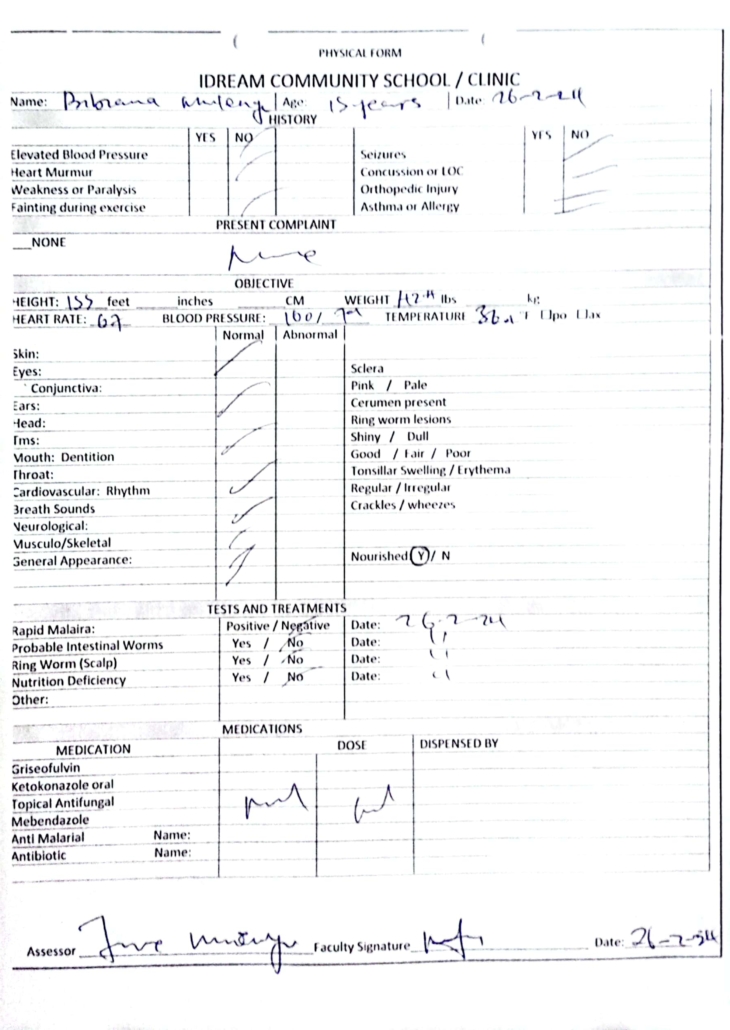 PHYSICAL FORM
IDREAM COMMUNITY SCHOOL / CLINIC
Name: Age: 15-years Date 26-2-24
HISTORY
YES NO YES NO
Elevated Blood Pressure Seizures
Heart Murmur Concussion or LOC
Weakness or Paralysis Orthopedic Injury
Fainting during exercise Asthma or Allergy
PRESENT COMPLAINT
__NONE
None
OBJECTIVE
HEIGHT: 155 feet inches CM WEIGHT lbs kg
HEART RATE: BLOOD PRESSURE: TEMPERATURE F po ax
Normal Abnormal
Skin:
Eyes: Sclera
Conjunctiva: Pink / Pale
Ears: Cerumen present
Head: Ring worm lesions
Tms: Shiny / Dull
Mouth: Dentition Good / Fair / Poor
Throat: Tonsillar Swelling / Erythema
Cardiovascular: Rhythm Regular / Irregular
Breath Sounds Crackles / wheezes
Neurological:
Musculo/Skeletal
General Appearance: Nourished Y / N
TESTS AND TREATMENTS
Rapid Malaira: Positive / Negative Date: 26-2-24
Probable Intestinal Worms Yes / No Date: "
Ring Worm (Scalp) Yes / No Date: "
Nutrition Deficiency Yes / No Date: "
Other:
MEDICATIONS
MEDICATION DOSE DISPENSED BY
Griseofulvin
Ketokonazole oral
Topical Antifungal
Mebendazole
Anti Malarial Name:
Antibiotic Name:
Assessor Faculty Signature Date: 26-2-24